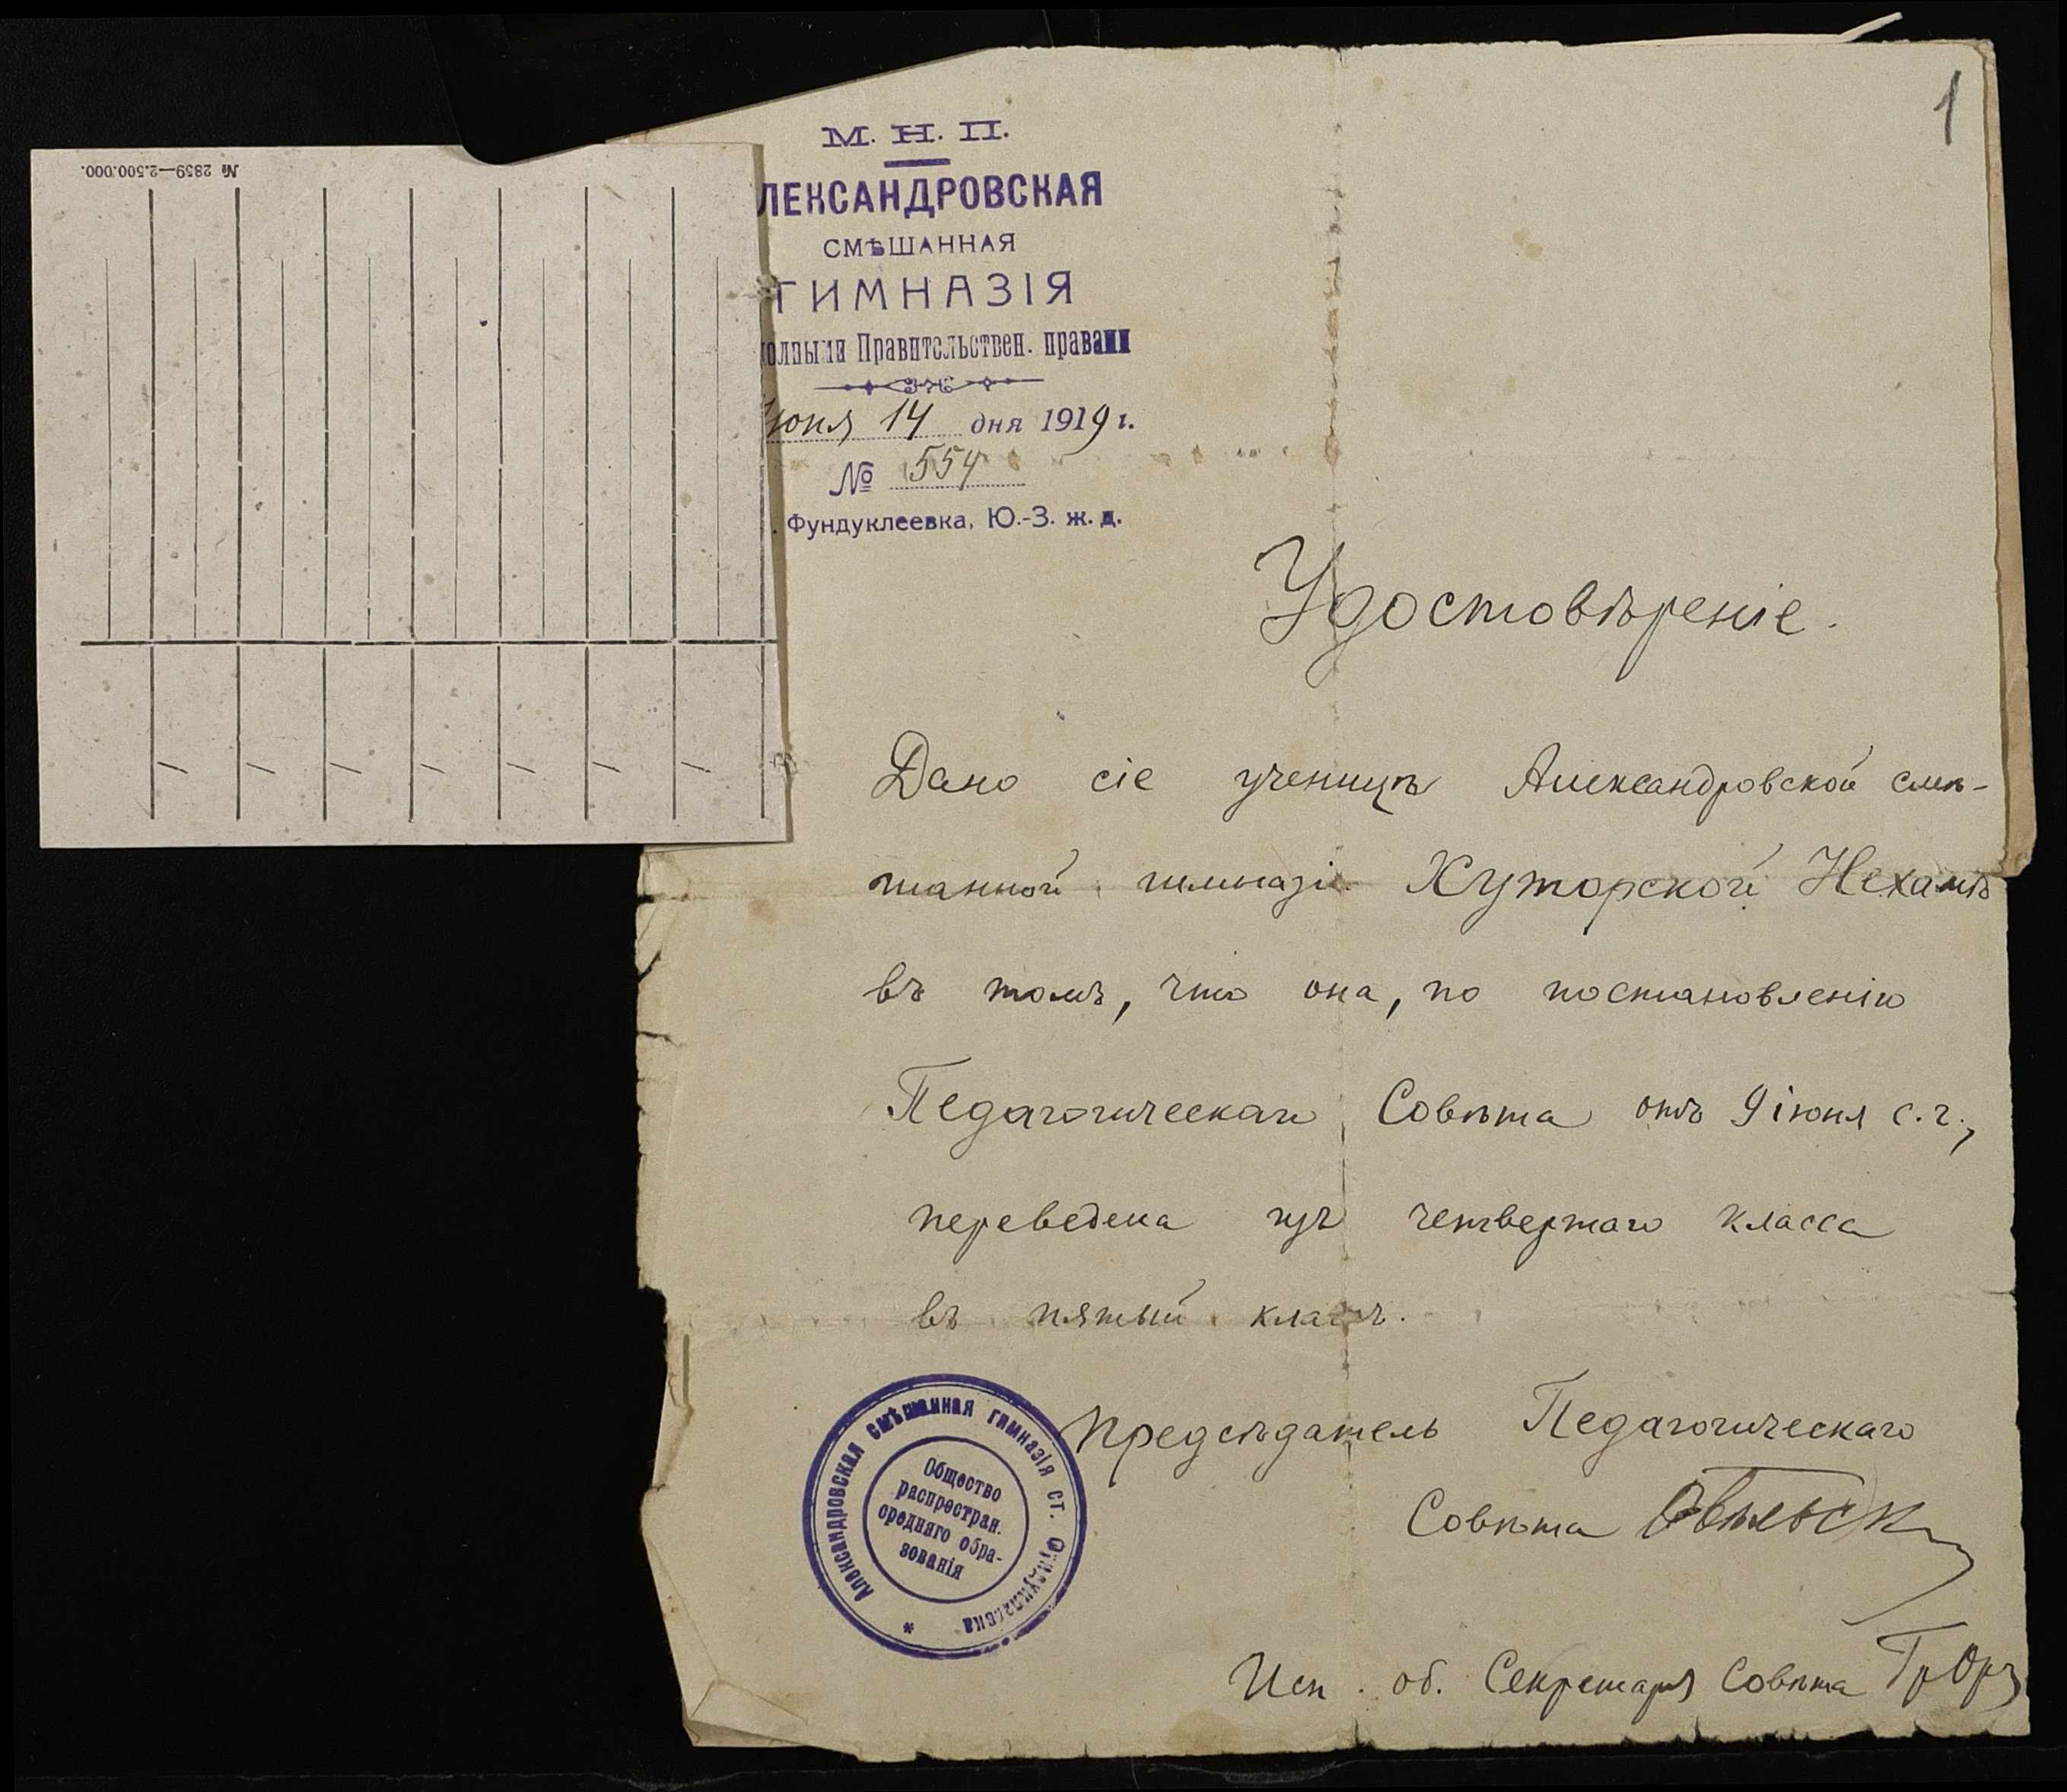 1
№ 2859—2.500.000.
М. Н. П.
ЛЕКСАНДРОВСКАЯ
СМѢШАННАЯ
ГИМНАЗІЯ
олными Правительствен. правами
Июня 14 дня 1919 г.
№ 554
. Фундуклеевка, Ю.-З. ж. д.
Удостовѣреніе.
Дано сіе ученицѣ Александровской смѣ-
шанной гимназіи Хуторской Нехамѣ
въ томъ, что она, по постановленію
Педагогическаго Совѣта отъ 9 іюня с. г.,
переведена изъ четвертаго класса
въ пятый классъ.
Предсѣдатель Педагогическаго
Совѣта
Исп. об. Секретаря Совѣта
Александровская смѣшанная гимназія ст. Фундуклеевка
*
Общество
распростран.
средняго обра-
зованія